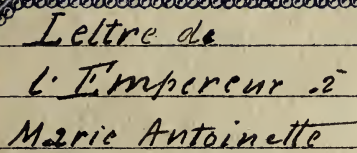 Lettre de
l'Empereur à
Marie Antoinette